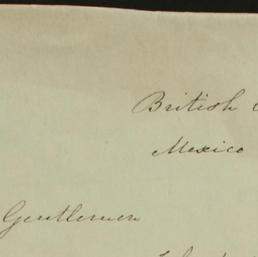 British
Mexico
Gentlemen